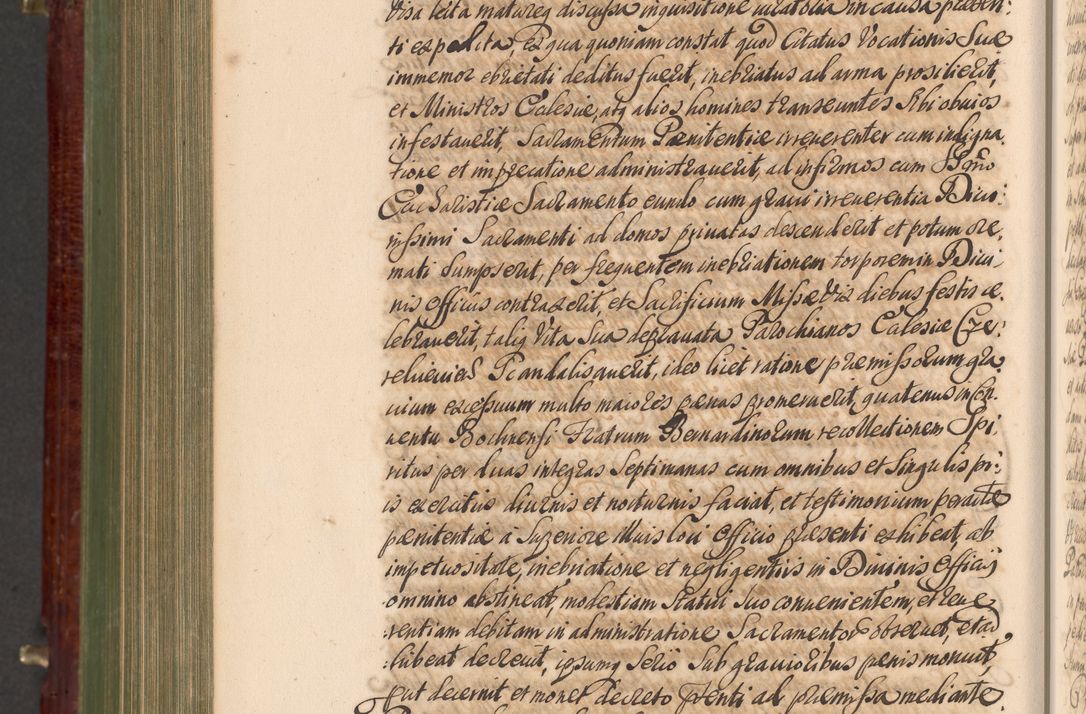 Visa lecta matureq discussa inquisitione iuratoria in causa præsen:
ti expedita, ex qua quoniam constat quod Citatus Vocationis Suæ
immemor ebrietati deditus fuerit, inebriatus ad arma prosilierit,
et Ministros Ecclesiæ, atq alios homines transeuntes Sibi obuios
infestauerit, Sacramentum Pænitentiæ irreuerenter cum indigna,
tione et imprecatione administrauerit, ad infirmos cum Ssmo
Eucharistiæ Sacramento eundo cum graui irreuerentia Diui:
nissimi Sacramenti ad domos priuatas descenderit et potum cre,
mati Sumpserit, per frequentem inebriationem torporem in Diui,
nis officiis contraxerit, et Sacrificium Missæ Vix diebus festis ce,
lebrauerit, taliq Vita Sua deprauata Parochianos Ecclesiæ
Scandalisauerit, ideo licet ratione præmissorum gra,
uium excessuum multo maiores pænas promeruerit, quatenus in Con,
uentu Bochnensi Fratrum Bernardinorum recollectionem Spi,
ritus per duas integras Septimanas cum omnibus et Singulis pi:
is exercitiis diurnis et nocturnis faciat, et testimonium peractæ
pænitentiæ à Superiore illius loci Officio præsenti exhibeat, ab
impetuositate, inebriatione et negligentiis in Diuinis Officiis
omnino abstineat, modestiam Statui Suo conuenientem, et reue,
rentiam debitam in administratione Sacramentorum obseruet, et ad
hibeat decreuit, ipsumq Seriò Sub grauioribus pænis monuit
put decernit et monet decreto præsenti ad præmissa mediante